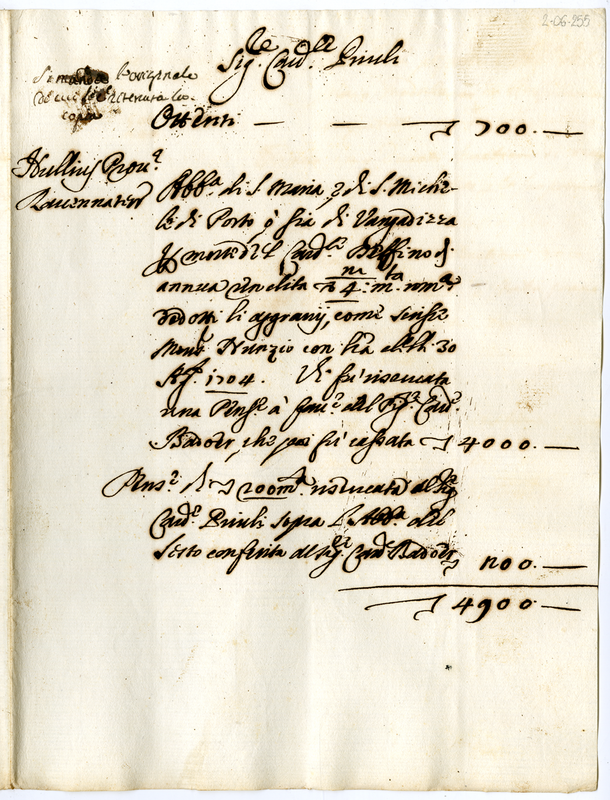 2-06-255
Sig.re Card.le Priuli
Si manda l'originale
di cui si è ritenuta la
copia
Ottenti — — 700. —
Nullius Prov.ę
Ravennaten
Abb.a di S. Maria, e di S. Miche-
le di Porto, ò sia di Vangadizza
p morte del Card.le Delfino di
annua rendita 4: m. 
dedotti li aggravij, come scrisse
Mons.r Nunzio con l'ra delli 30
Ag.o 1704. Vi fu riservata
una Pens.e à fav.e del Sig.r Card.
Badoer, che poi fu cassata 4000. —
Pens.e di 200 m.ta riservata al Sig.r
Card.e Priuli sopra l'Abb.a del
Sesto conferita al Sig.r Card. Badoer
200. —
4900. —